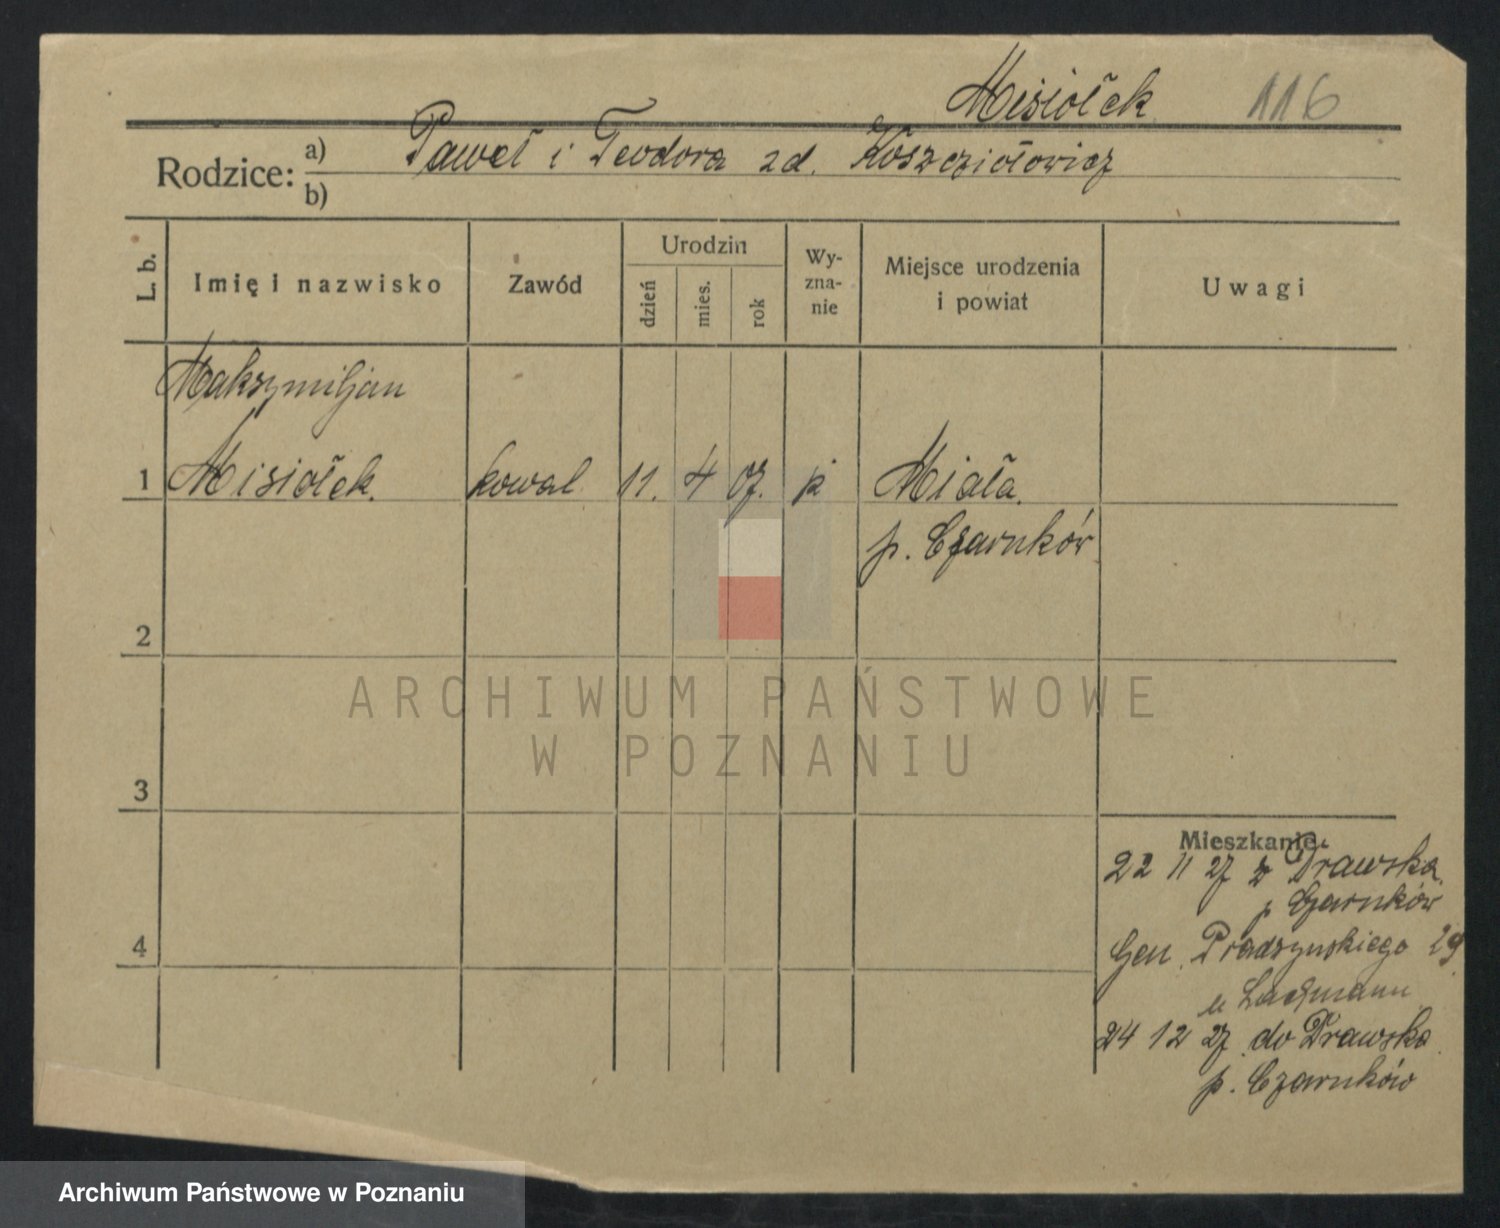 Misiołek 116
Rodzice: a) Paweł i Teodora zd. Koszcziołowicz
b)
L. b.
Imię i nazwisko
Zawód
Urodzin
dzień
mies.
rok
Wy-
zna-
nie
Miejsce urodzenia
i powiat
Uwagi
Maksymiljan
1 Misiołek. kowal 11. 4 07. k Miała.
p. Czarnków
2
3
4
Mieszkanie
22 11 27 z Drawska
p Czarnków
Gen. Prądzyńskiego 29
u Lachmann
24 12 27 do Drawska
p. Czarnków
ARCHIWUM PAŃSTWOWE
W POZNANIU
Archiwum Państwowe w Poznaniu